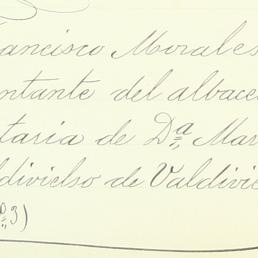 rancisco Morales
ntante del albacea
taria de Dª Mar
ldivielso de Valdivie
º 3)